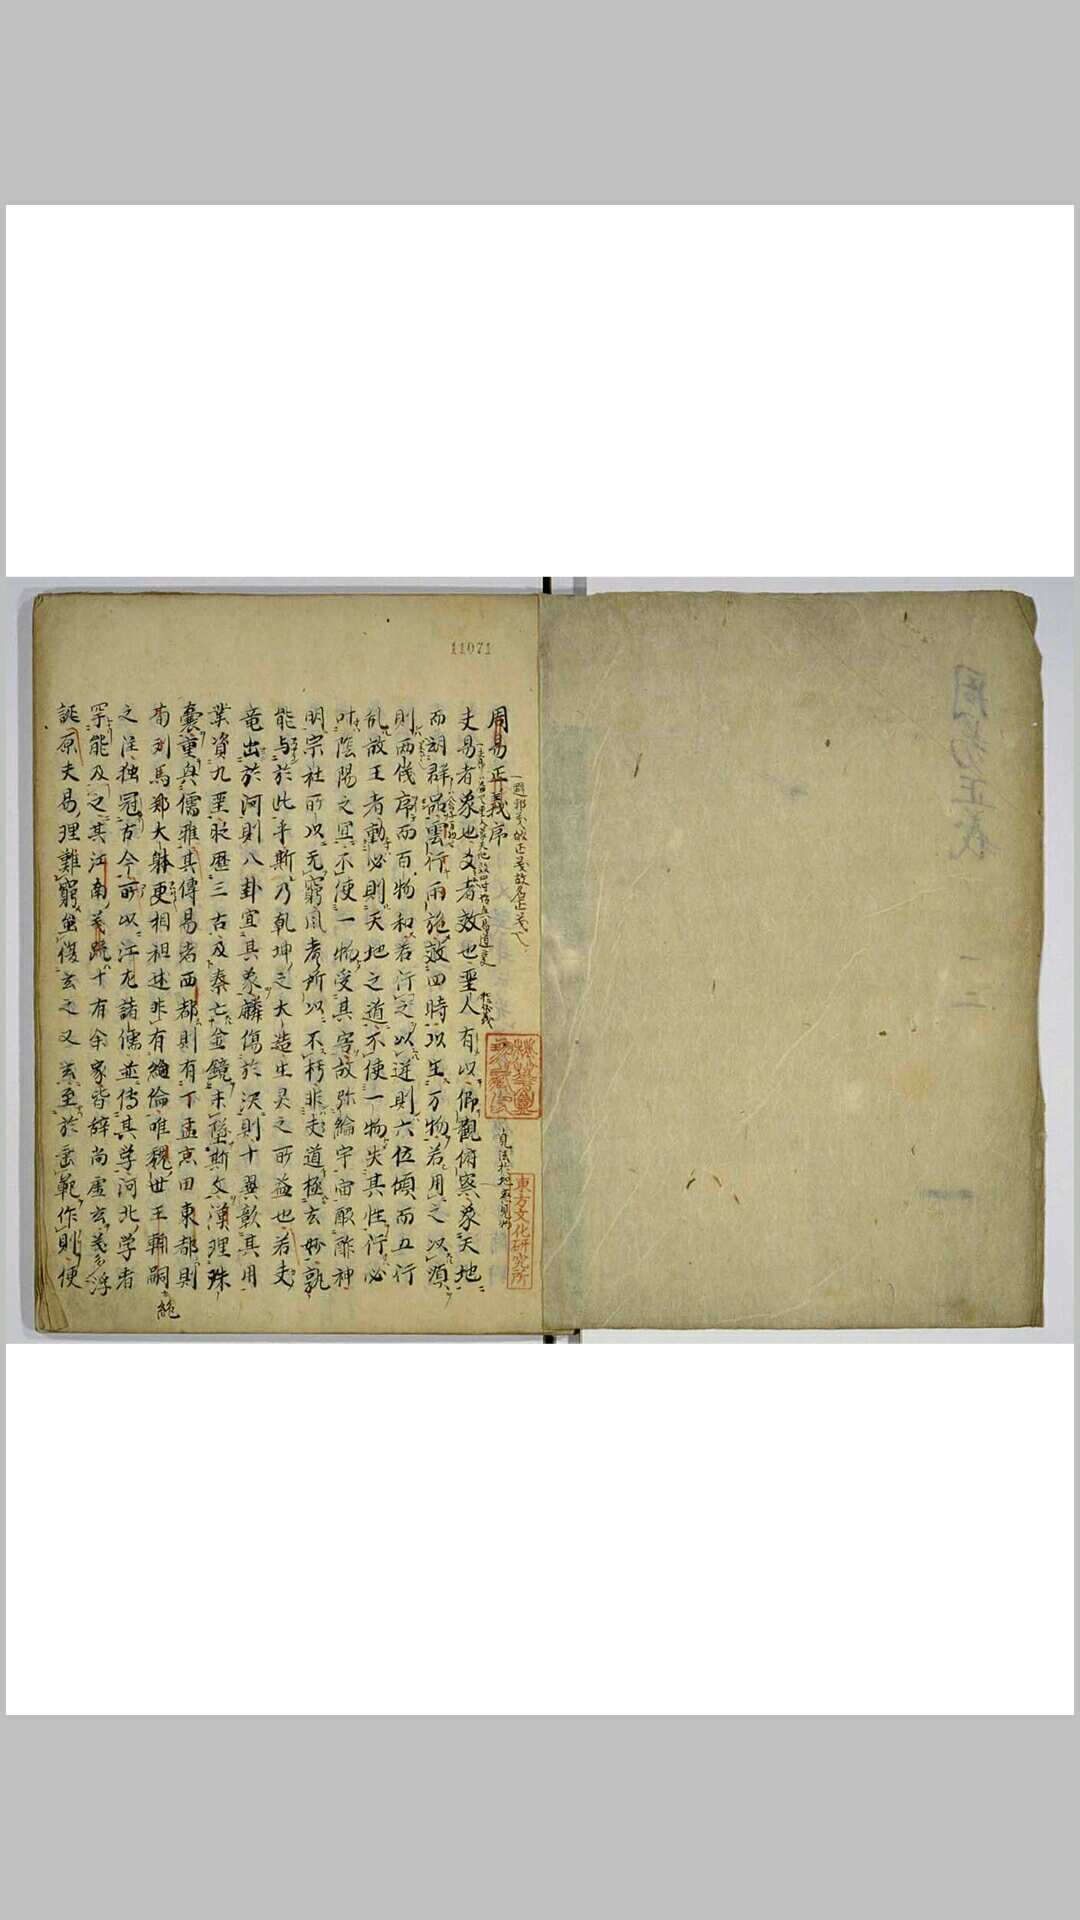 周易正義序
夫易者象也爻者效也聖人有以仰觀俯察象天地
而育群品雲行雨施效四時以生万物若用之以順
則兩儀序而百物和若行之以逆則六位傾而五行
乱故王者動必則天地之道不使一物失其性行必
叶陰陽之宜不使一物受其害故弥綸宇宙酬酢神
明宗社所以无窮風声所以不朽非夫道極玄妙孰
能与於此乎斯乃乾坤之大造生灵之所益也若夫
竜出於河則八卦宣其象麟傷於沢則十翼彰其用
業資九聖時歷三古及秦亡金鏡未墜斯文漢理珠
囊重興儒雅其傳易者西都則有丁孟京田東都則
荀刘馬郑大躰更相祖述非有絶倫唯魏世王輔嗣
之注独冠古今所以江左諸儒並傳其学河北学者
罕能及之其江南義疏十有余家皆辞尚虚玄義多浮
誕原夫易理難窮虽復玄之又玄至於垂範作則便
絶
11071
東方文化研究所
周易正義
一二三